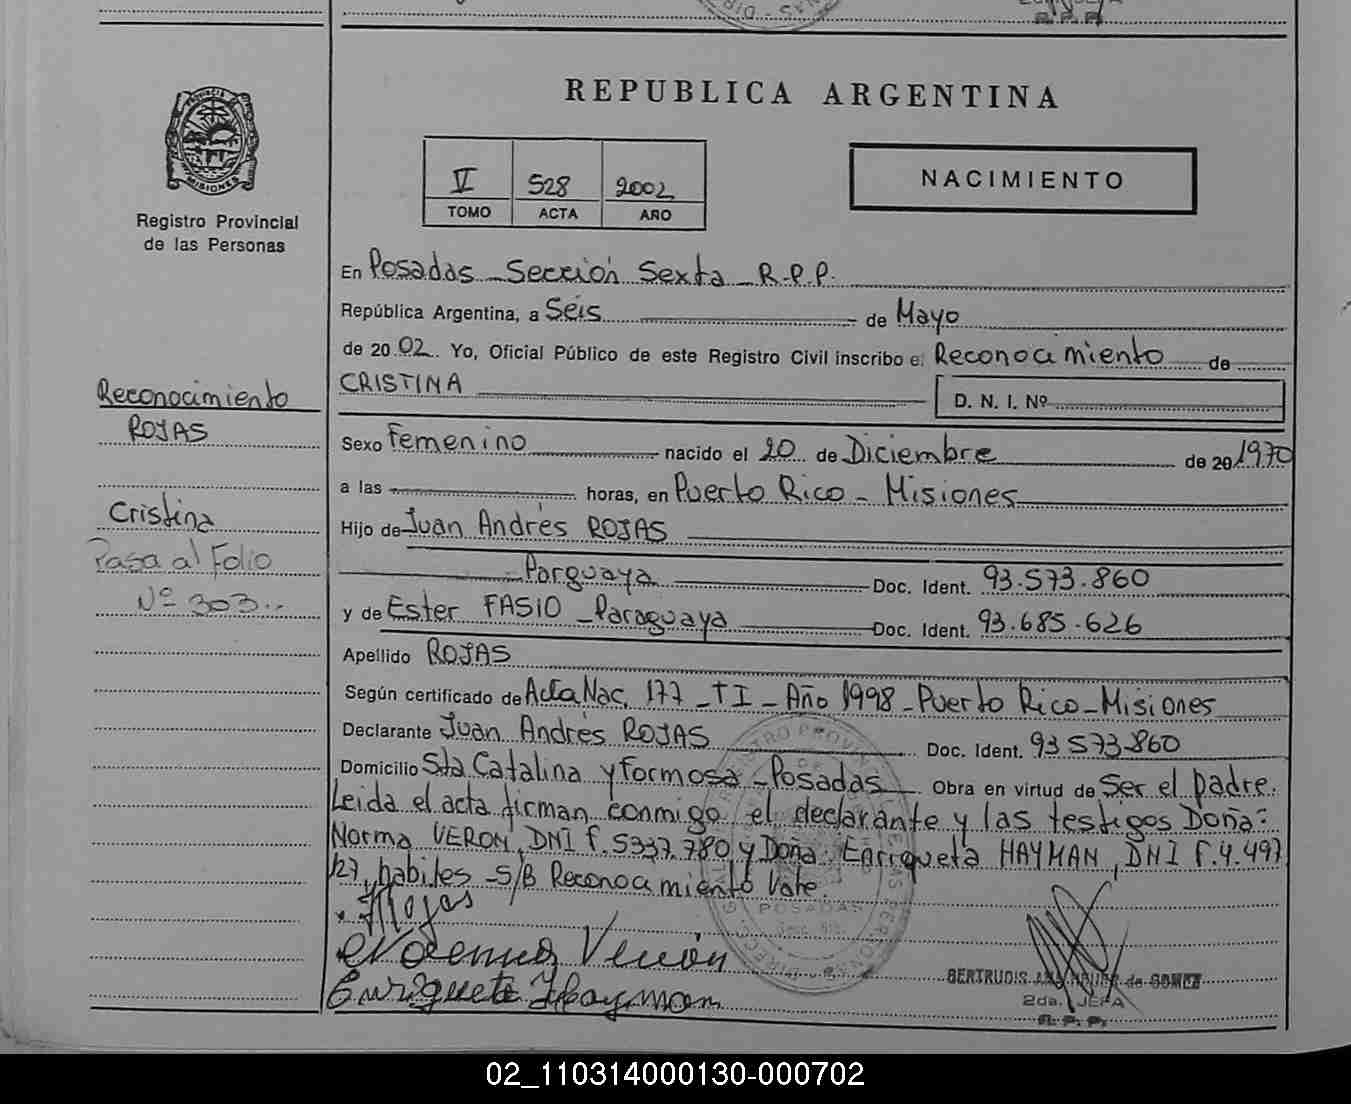 REPUBLICA ARGENTINA
PROVINCIA DE
MISIONES
Registro Provincial
de las Personas
V 528 2002
TOMO ACTA AÑO
NACIMIENTO
En Posadas Sección Sexta R.P.P.
República Argentina, a Seis de Mayo
de 2002. Yo, Oficial Público de este Registro Civil inscribo el Reconocimiento de
CRISTINA D. N. I. Nº
Sexo Femenino nacido el 20 de Diciembre de 20 1970
a las horas, en Puerto Rico - Misiones
Hijo de Juan Andrés ROJAS
Parguaya Doc. Ident. 93.573.860
y de Ester FASIO - Paraguaya Doc. Ident. 93.685.626
Apellido ROJAS
Según certificado de Acta Nac. 177 - T I - Año 1998 - Puerto Rico - Misiones
Declarante Juan Andrés ROJAS Doc. Ident. 93 573.860
Domicilio Sta Catalina y Formosa - Posadas Obra en virtud de Ser el padre.
Leida el acta firman conmigo el declarante y las testigos Doña:
Norma VERON, DNI F. 5337.780, y Doña Enriqueta HAYMAN, DNI F. 4.497
127, habiles - S/B Reconocimiento Vale.
Reconocimiento
ROJAS
Cristina
Pasa al Folio
Nº 303..
POSADAS
Norma Verón
Enriqueta Hayman
GERTRUDIS de GOMEZ
2da. JEFA
R. P. P.
02_110314000130-000702